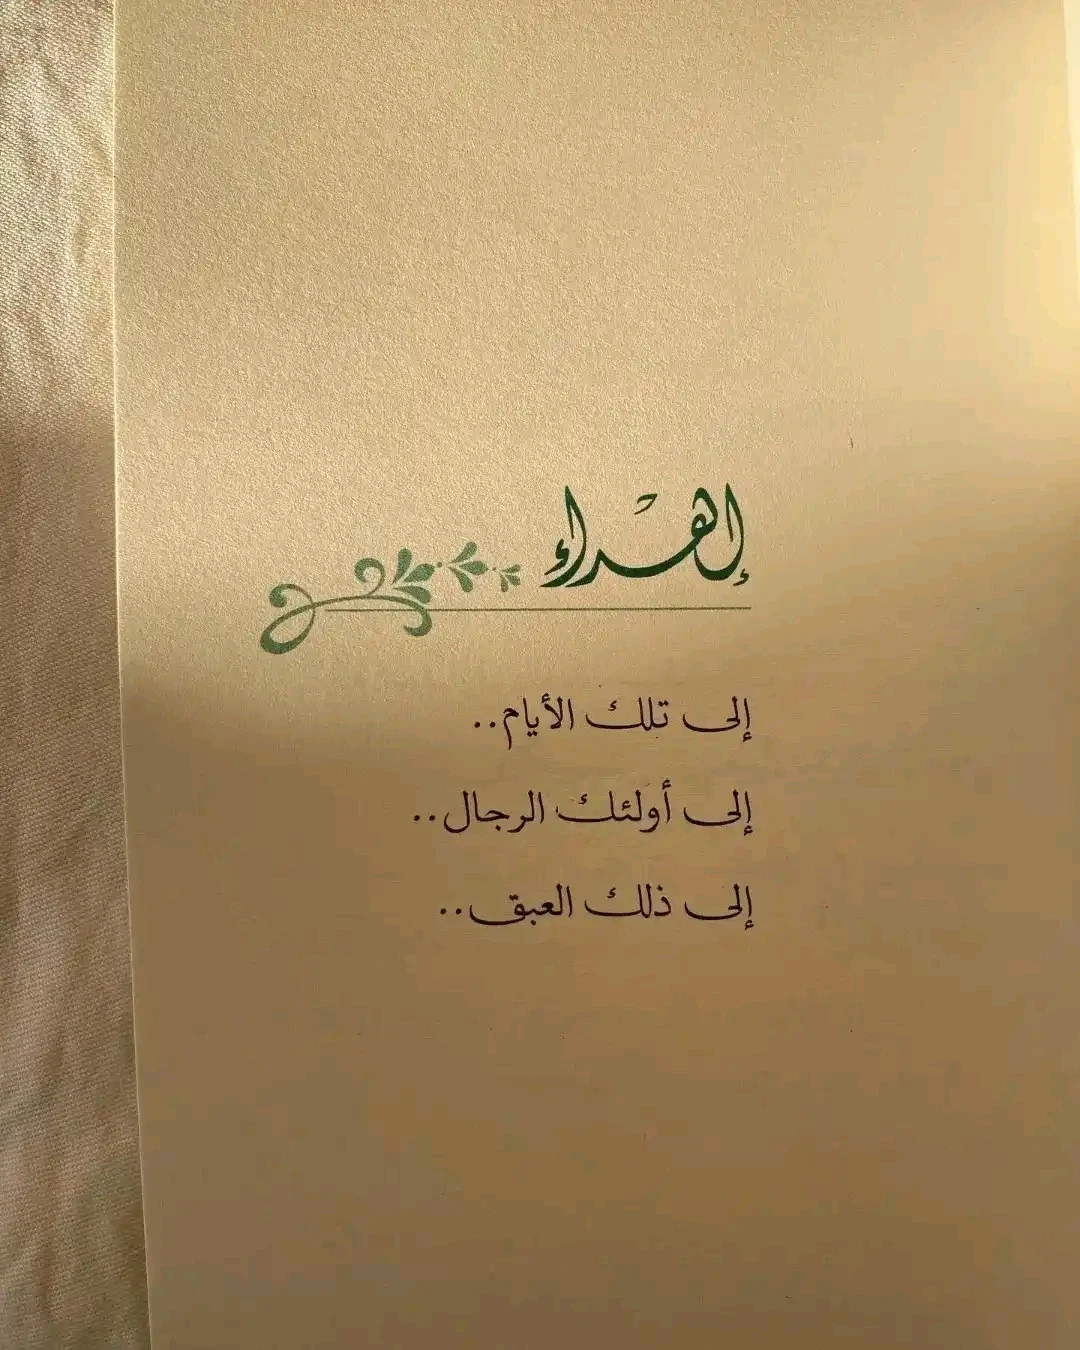 إهداء
إلى تلك الأيام..
إلى أولئك الرجال..
إلى ذلك العبق..